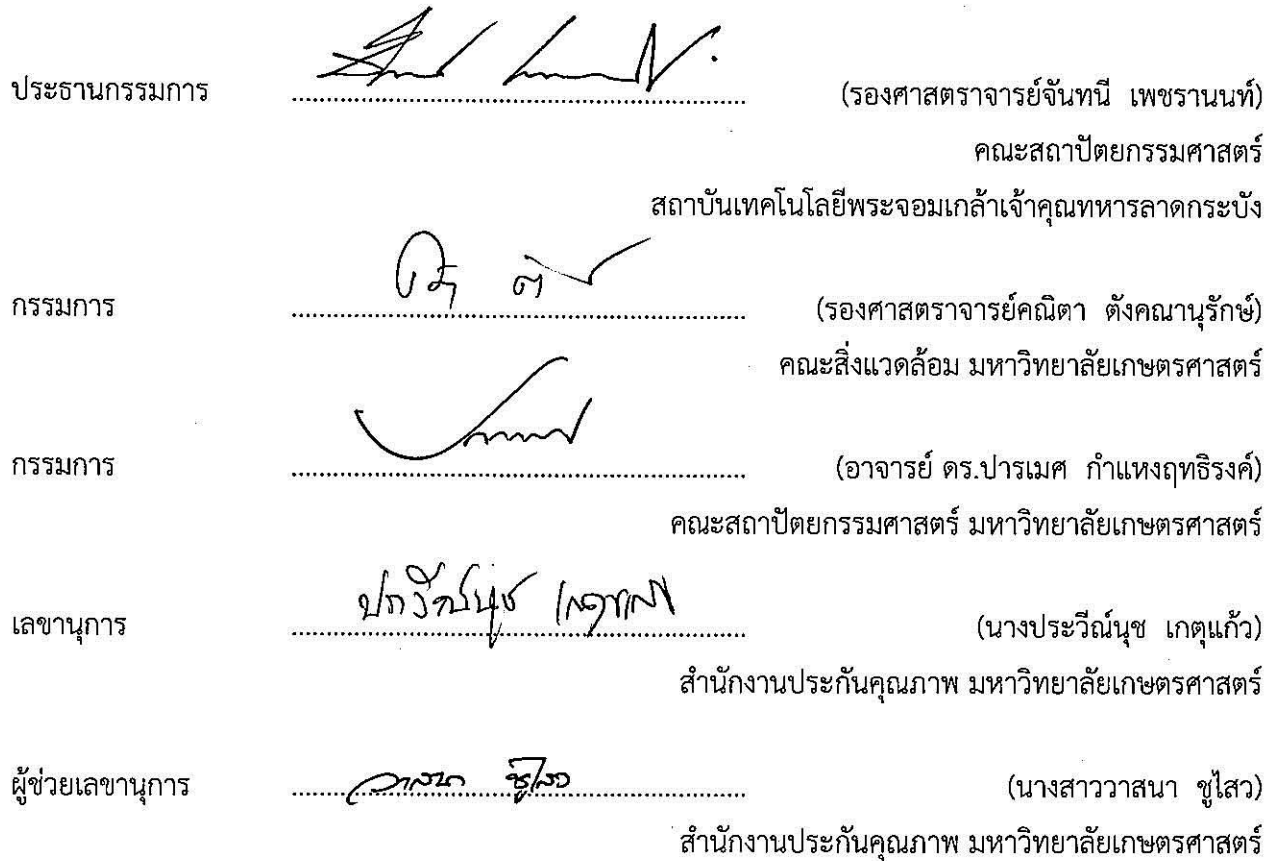 ประธานกรรมการ (รองศาสตราจารย์จันทนี เพชรานนท์)
คณะสถาปัตยกรรมศาสตร์
สถาบันเทคโนโลยีพระจอมเกล้าเจ้าคุณทหารลาดกระบัง
กรรมการ (รองศาสตราจารย์คณิตา ตังคณานุรักษ์)
คณะสิ่งแวดล้อม มหาวิทยาลัยเกษตรศาสตร์
กรรมการ (อาจารย์ ดร.ปารเมศ กำแหงฤทธิรงค์)
คณะสถาปัตยกรรมศาสตร์ มหาวิทยาลัยเกษตรศาสตร์
เลขานุการ (นางประวีณ์นุช เกตุแก้ว)
สำนักงานประกันคุณภาพ มหาวิทยาลัยเกษตรศาสตร์
ผู้ช่วยเลขานุการ วาสนา ชูไสว (นางสาววาสนา ชูไสว)
สำนักงานประกันคุณภาพ มหาวิทยาลัยเกษตรศาสตร์